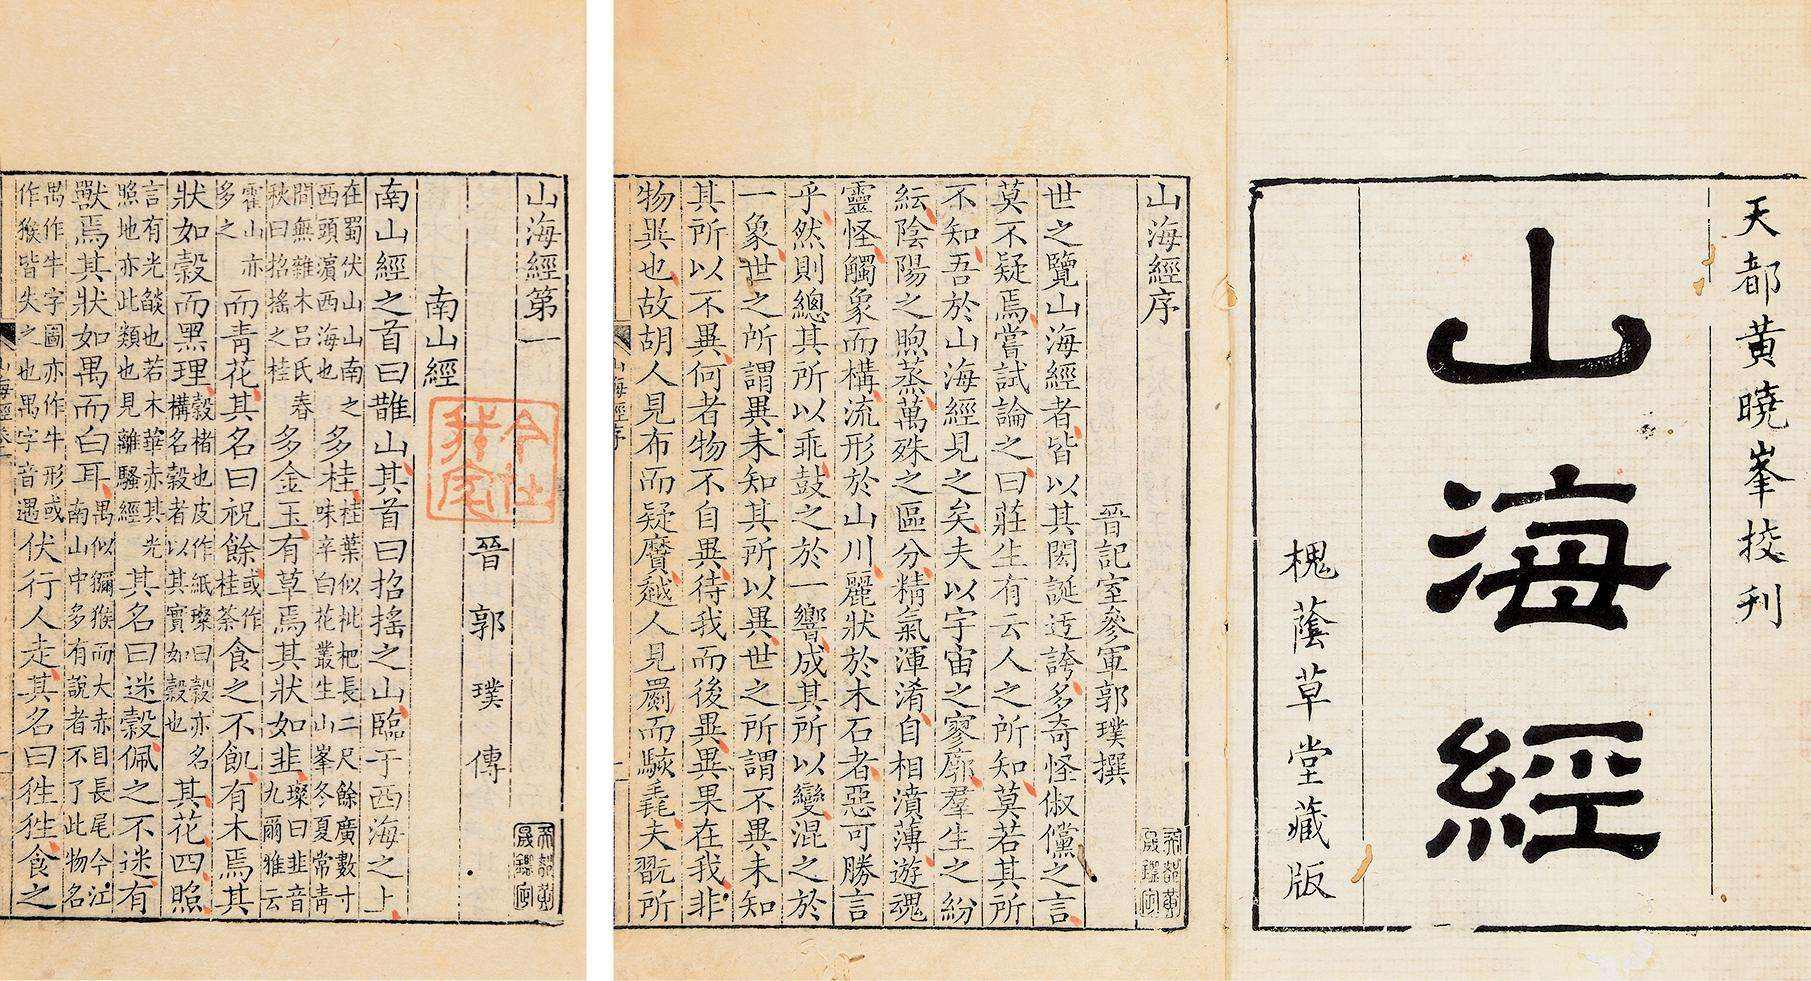 天都黃曉峯挍刊
山海經
槐蔭草堂藏版
山海經序
晉記室參軍郭璞撰
世之覽山海經者皆以其閎誕迂誇多奇怪俶儻之言
莫不疑焉嘗試論之曰莊生有云人之所知莫若其所
不知吾於山海經見之矣夫以宇宙之寥廓羣生之紛
紜陰陽之煦蒸萬殊之區分精氣渾淆自相濆薄遊魂
靈怪觸象而構流形於山川麗狀於木石者惡可勝言
乎然則總其所以乖鼓之於一響成其所以變混之於
一象世之所謂異未知其所以異世之所謂不異未知
其所以不異何者物不自異待我而後異異果在我非
物異也故胡人見布而疑黂越人見罽而駭毳夫翫所
山海經序
山海經第一
晉 郭 璞 傳
南山經
南山經之首曰䧿山其首曰招搖之山臨于西海之上
在蜀伏山山南之西頭濵西海也多桂桂葉似枇杷長二尺餘廣數寸味辛白花叢生山峯冬夏常青
間無雜木呂氏春秋曰招搖之桂多金玉有草焉其狀如韭璨曰韭音九爾雅云
霍山亦多之而青花其名曰祝餘或作桂荼食之不飢有木焉其
狀如穀而黑理穀楮也皮作紙璨曰穀亦名構名穀者以其實如穀也其花四照
言有光燄也若木華赤其光照地亦此類也見離騷經其名曰迷穀佩之不迷有
獸焉其狀如禺而白耳禺似獼猴而大赤目長尾今江南山中多有說者不了此物名
禺作牛字圖亦作牛形或作猴皆失之也禺字音遇伏行人走其名曰狌狌食之